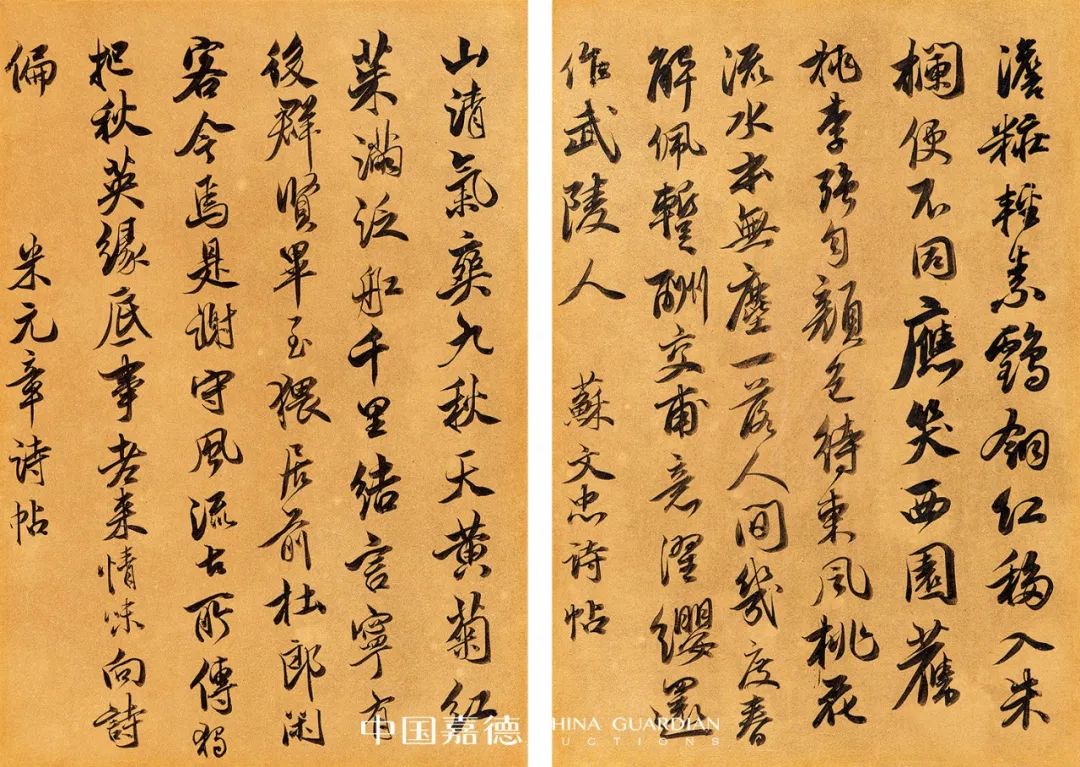 澹粧輕素鶴翎紅移入朱
欄便不同應笑西園舊
桃李強勻顏色待東風桃花
流水本無塵一落人間幾度春
解佩暫酬交甫意濯纓還
作武陵人 蘇文忠詩帖
山清氣爽九秋天黃菊紅
茱滿泛船千里結言寧有
後群賢畢至猥居前杜郎閑
客今焉是謝守風流古所傳獨
把秋英緣底事老來情味向詩
偏 米元章詩帖
中国嘉德
HINA GUARDIAN
UCTIONS